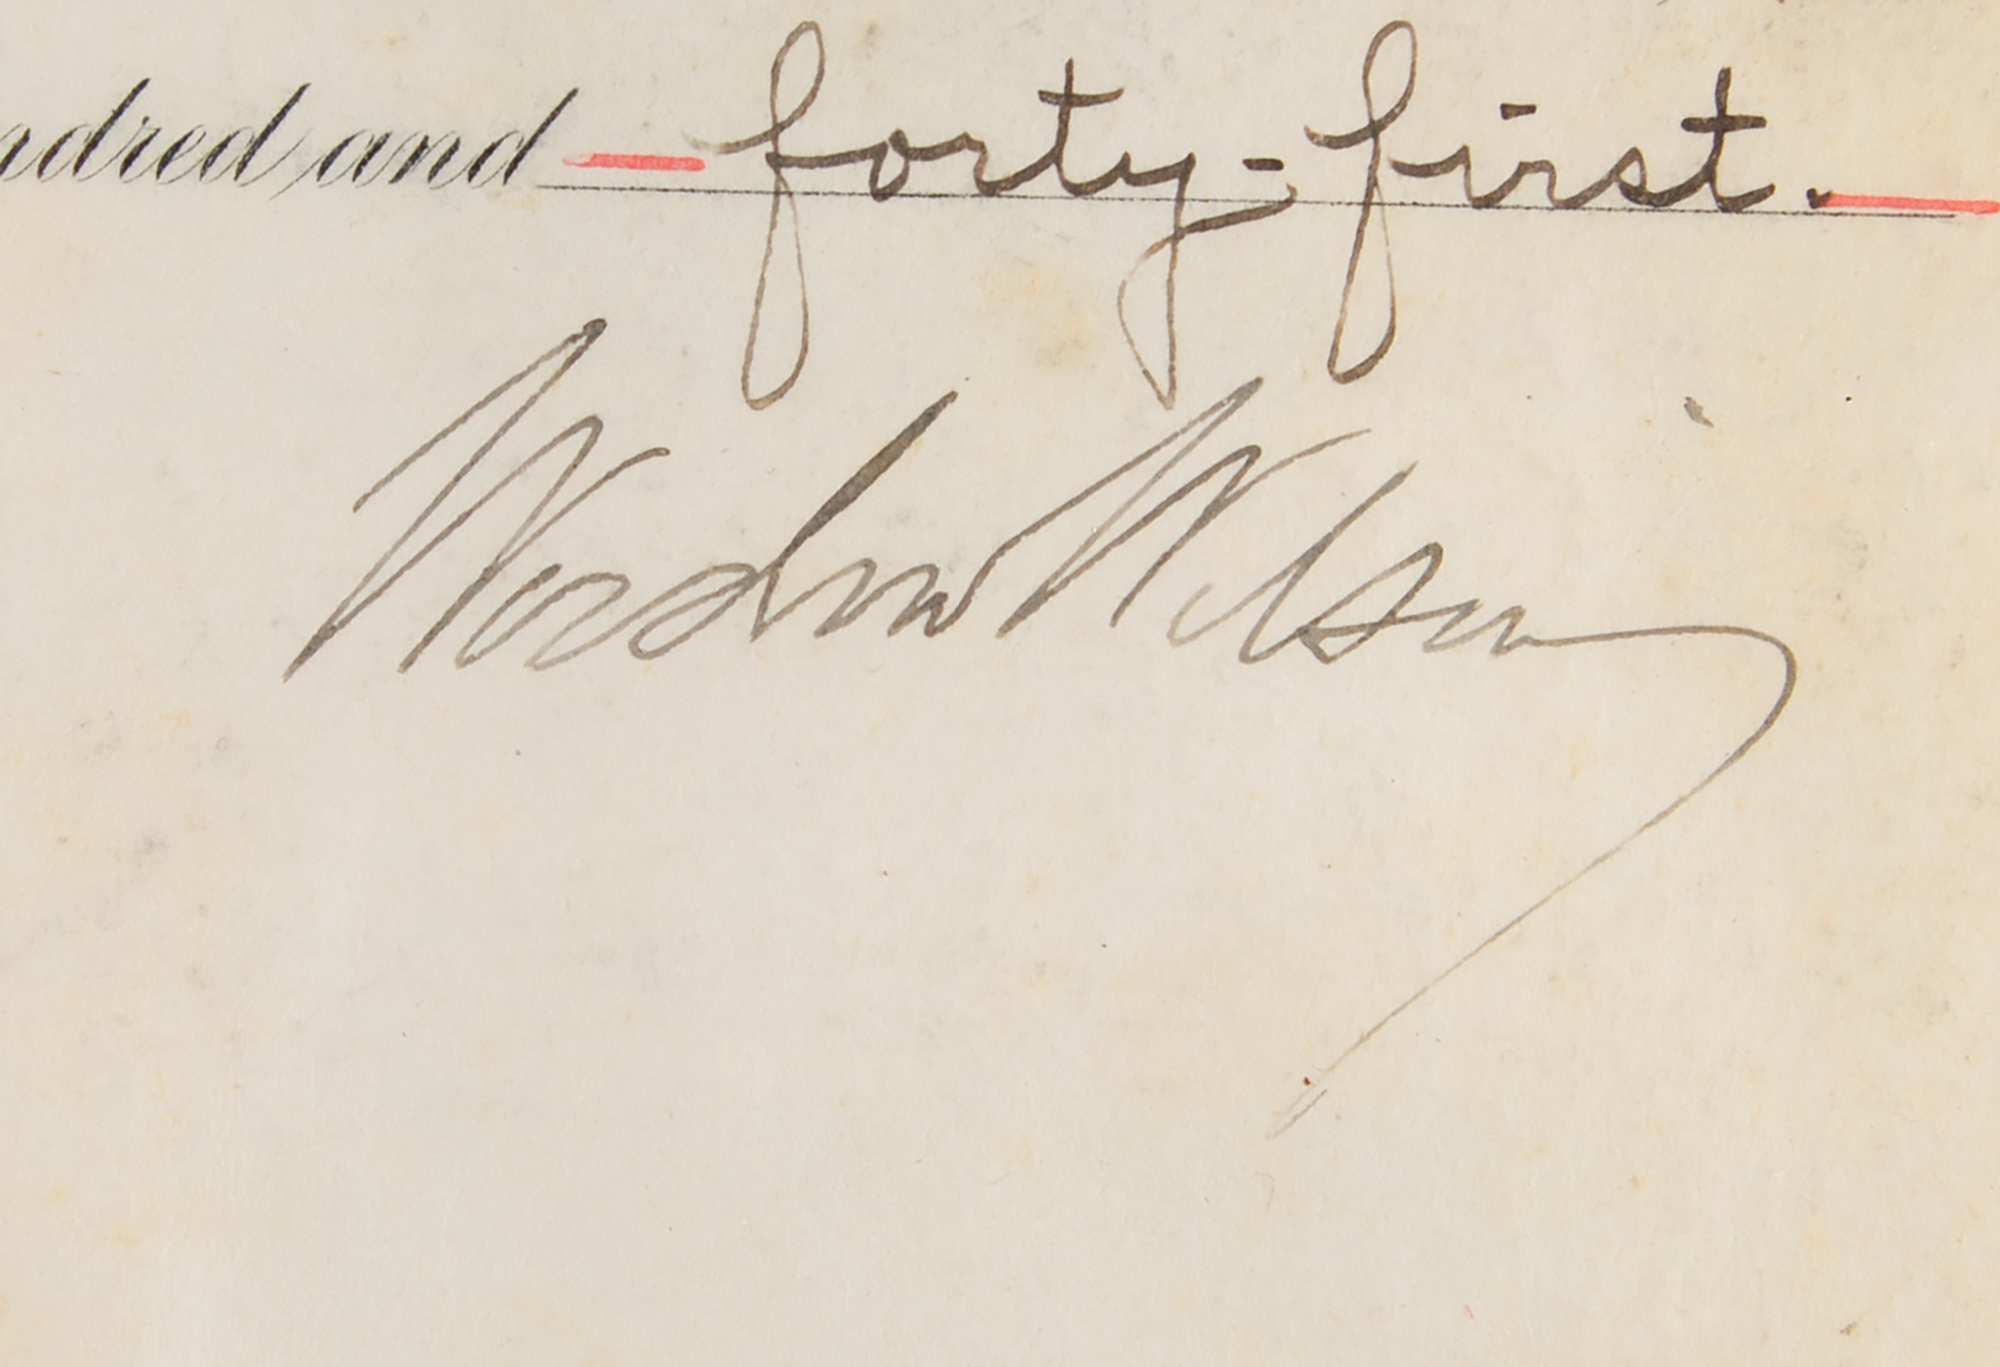 ndred and forty-first.
Woodrow Wilson